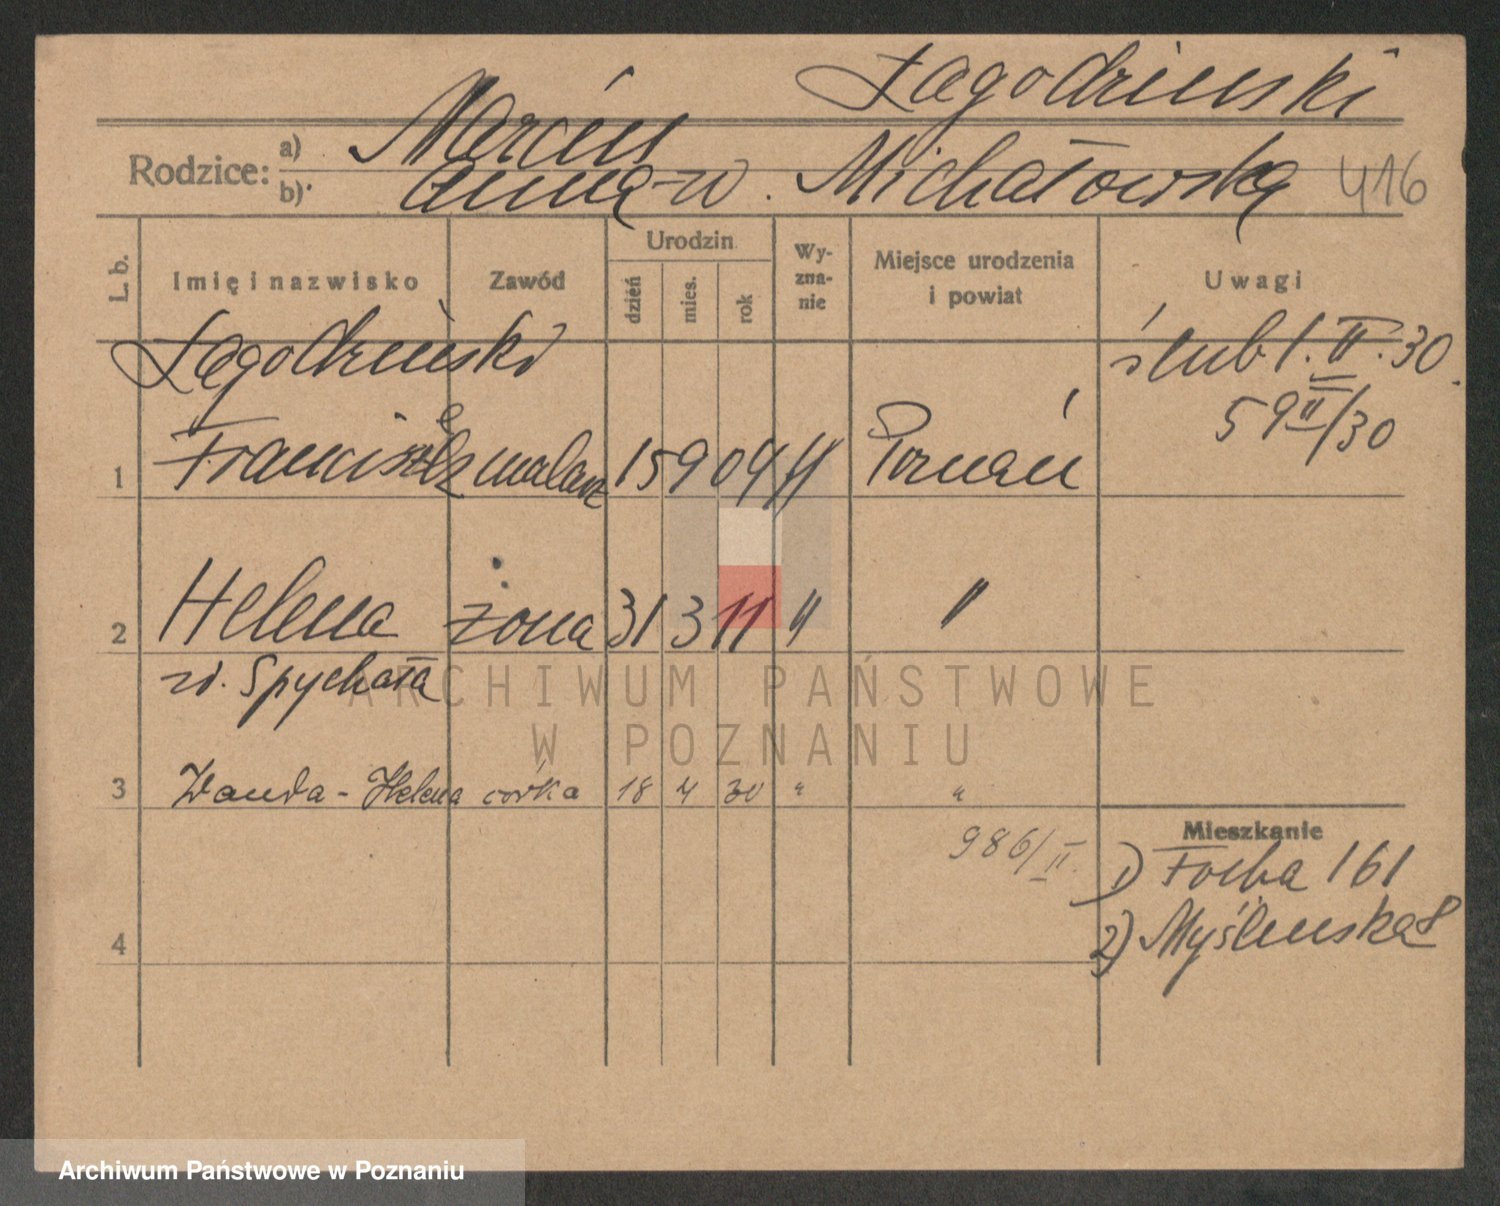 Łagodzinski
Rodzice: a) Marcin
b) Anna z d. Michałowska 416
L. b. Imię i nazwisko Zawód Urodzin dzień mies. rok Wyznanie Miejsce urodzenia i powiat Uwagi
Łagodziński ślub 1. II. 30.
59 II/30
1 Franciszek malarz 15 9 04 Poznań
2 Helena żona 31 3 11 " "
zd. Spychała
3 Wanda-Helena córka 18 4 30 " "
986/II.
Mieszkanie
1) Focha 161
2) Myśleńska 8
4
ARCHIWUM PAŃSTWOWE
W POZNANIU
Archiwum Państwowe w Poznaniu